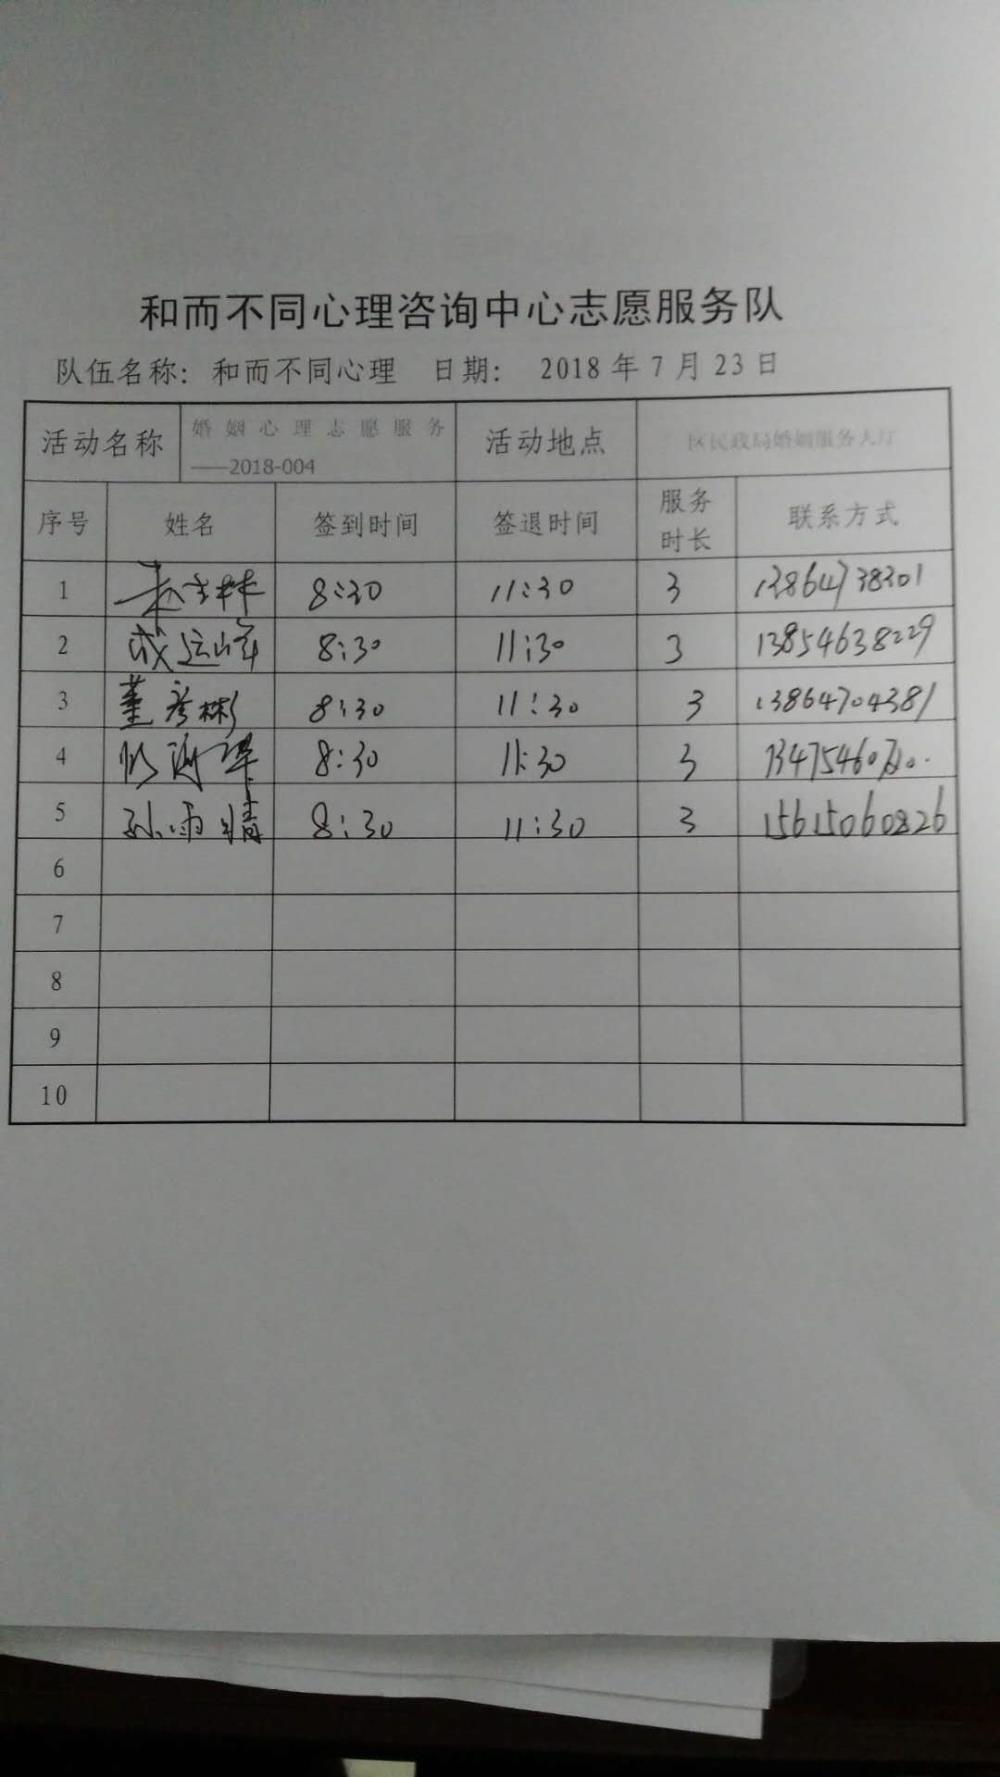 和而不同心理咨询中心志愿服务队
队伍名称: 和而不同心理 日期: 2018年7月23日
活动名称 婚姻心理志愿服务——2018-004 活动地点 区民政局婚姻服务大厅
序号 姓名 签到时间 签退时间 服务时长 联系方式
1 8:30 11:30 3 13864738301
2 成运峰 8:30 11:30 3 13854638229
3 董彦彬 8:30 11:30 3 13864704381
4 8:30 11:30 3
5 孙雨晴 8:30 11:30 3 15615060826
6
7
8
9
10